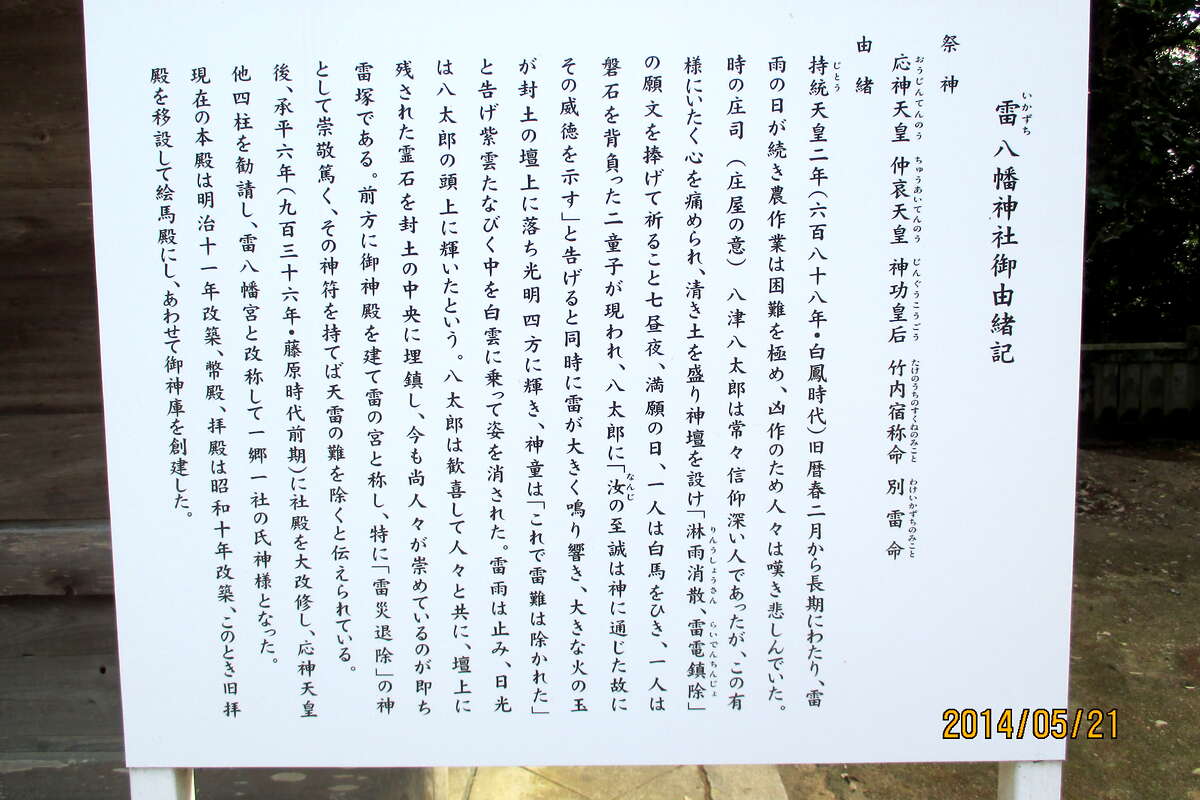 雷八幡神社御由緒記
いかずち
祭神
応神天皇 仲哀天皇 神功皇后 竹内宿称命 別雷命
おうじんてんのう ちゅうあいてんのう じんぐうこうごう たけのうちのすくねのみこと わけいかずちのみこと
由緒
持統天皇二年(六百八十八年・白鳳時代)旧暦春二月から長期にわたり、雷
じとう
雨の日が続き農作業は困難を極め、凶作のため人々は嘆き悲しんでいた。
時の庄司(庄屋の意)八津八太郎は常々信仰深い人であったが、この有
様にいたく心を痛められ、清き土を盛り神壇を設け「淋雨消散、雷電鎮除」
りんうしょうさん らいでんちんじょ
の願文を捧げて祈ること七昼夜、満願の日、一人は白馬をひき、一人は
磐石を背負った二童子が現われ、八太郎に「汝の至誠は神に通じた故に
なんじ
その威徳を示す」と告げると同時に雷が大きく鳴り響き、大きな火の玉
が封土の壇上に落ち光明四方に輝き、神童は「これで雷難は除かれた」
と告げ紫雲たなびく中を白雲に乗って姿を消された。雷雨は止み、日光
は八太郎の頭上に輝いたという。八太郎は歓喜して人々と共に、壇上に
残された霊石を封土の中央に埋鎮し、今も尚人々が崇めているのが即ち
雷塚である。前方に御神殿を建て雷の宮と称し、特に「雷災退除」の神
として崇敬篤く、その神符を持てば天雷の難を除くと伝えられている。
後、承平六年(九百三十六年・藤原時代前期)に社殿を大改修し、応神天皇
他四柱を勧請し、雷八幡宮と改称して一郷一社の氏神様となった。
現在の本殿は明治十一年改築、幣殿、拝殿は昭和十年改築、このとき旧拝
殿を移設して絵馬殿にし、あわせて御神庫を創建した。
2014/05/21